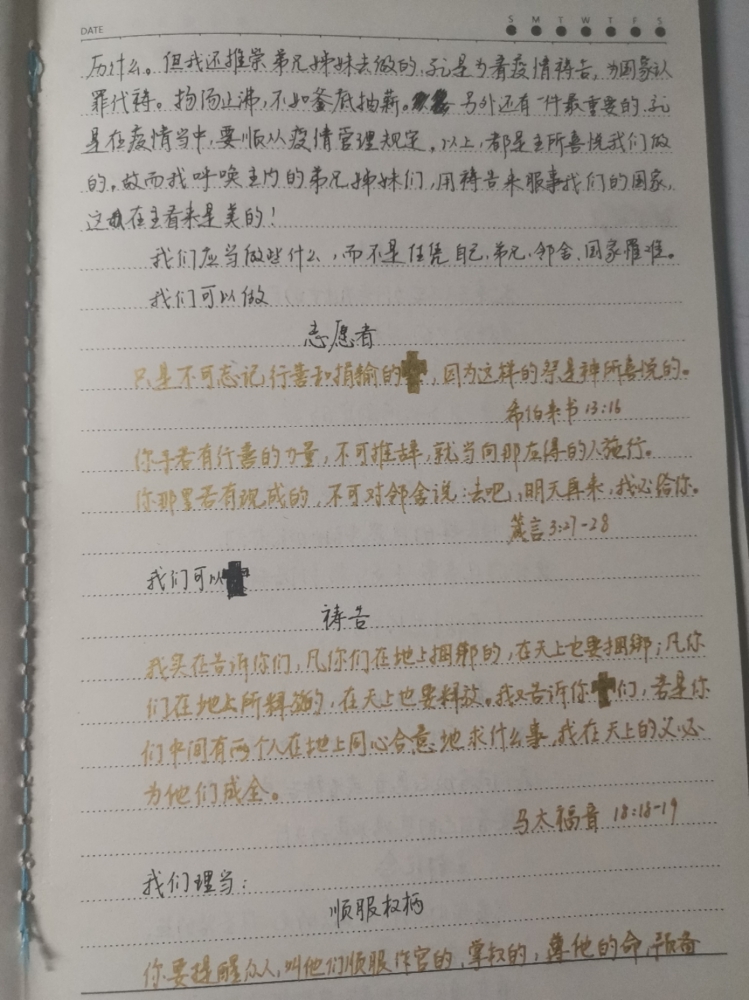 DATE
S M T W T F S
历什么。但我还推崇弟兄姊妹去做的,就是为着疫情祷告,为国家认
罪代祷。扬汤止沸,不如釜底抽薪。另外还有一件最重要的,就
是在疫情当中,要顺从疫情管理规定。以上,都是主所喜悦我们做
的。故而我呼唤主内的弟兄姊妹们,用祷告来服事我们的国家,
这在主看来是美的!
我们应当做些什么,而不是任凭自己、弟兄、邻舍、国家罹难。
我们可以做
志愿者
只是不可忘记行善和捐输的,因为这样的祭是神所喜悦的。
希伯来书 13:16
你手若有行善的力量,不可推辞,就当向那应得的人施行。
你那里若有现成的,不可对邻舍说:去吧,明天再来,我必给你。
箴言 3:27-28
我们可以
祷告
我实在告诉你们,凡你们在地上捆绑的,在天上也要捆绑;凡你
们在地上所释放的,在天上也要释放。我又告诉你们,若是你
们中间有两个人在地上同心合意地求什么事,我在天上的父必
为他们成全。
马太福音 18:18-19
我们理当:
顺服权柄
你要提醒众人,叫他们顺服作官的,掌权的,遵他的命,预备